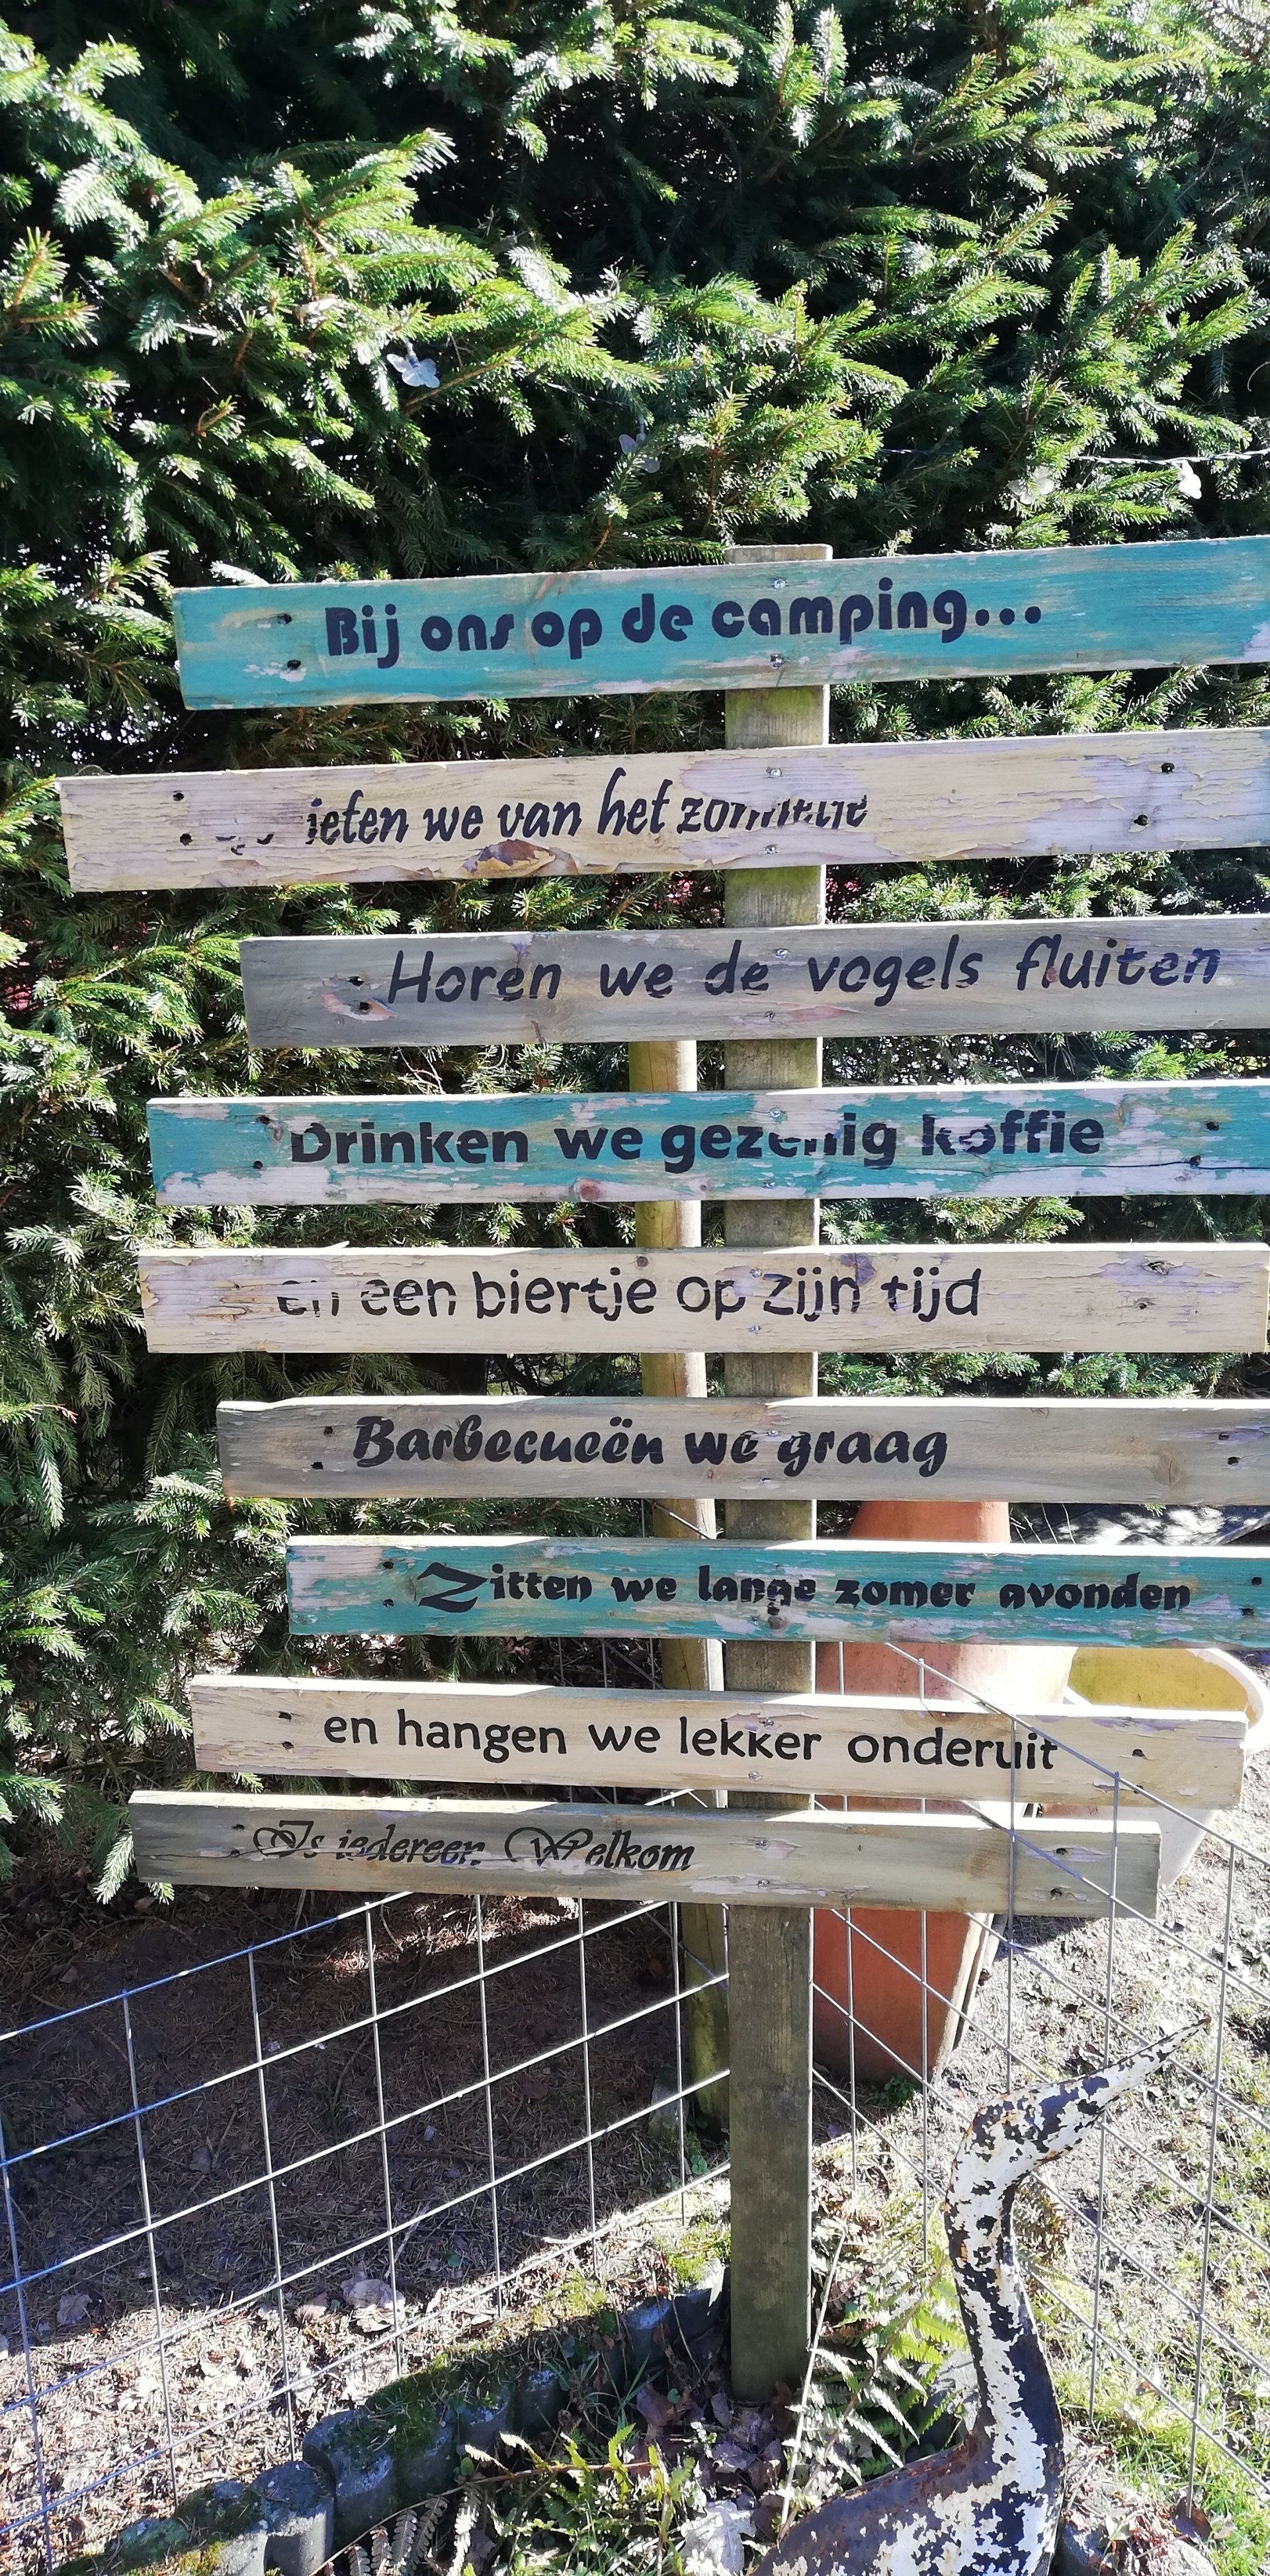 Bij ons op de camping...
ieten we van het zonnetje
Horen we de vogels fluiten
Drinken we gezellig koffie
en een biertje op zijn tijd
Barbecueën we graag
Zitten we lange zomer avonden
en hangen we lekker onderuit
Is iedereen Welkom